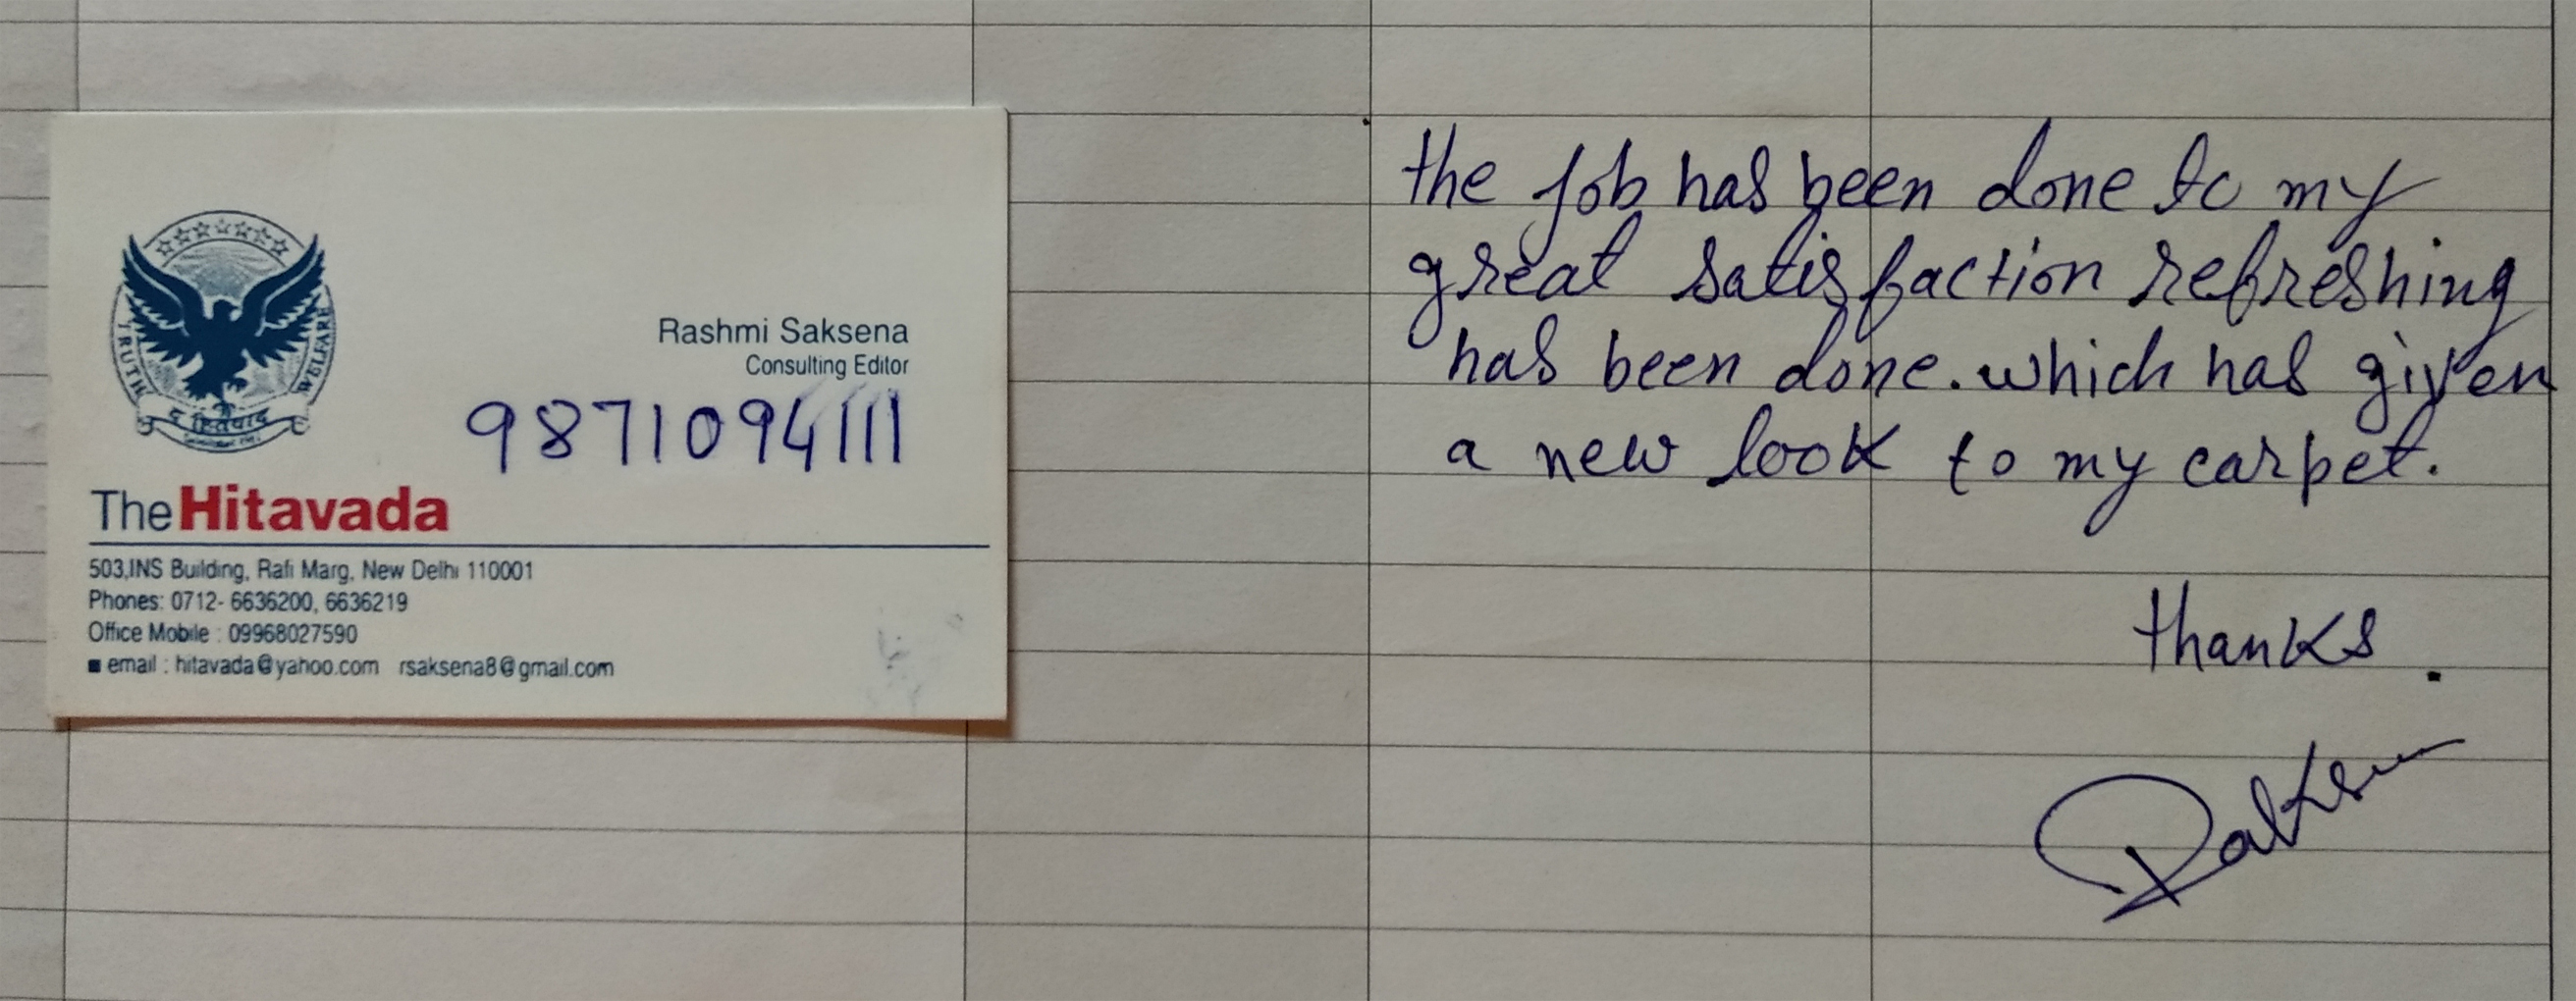 TRUTH
WELFARE
द हितवाद
Rashmi Saksena
Consulting Editor
9871094111
The Hitavada
503,INS Building, Rafi Marg, New Delhi 110001
Phones: 0712- 6636200, 6636219
Office Mobile : 09968027590
email : hitavada@yahoo.com rsaksena8@gmail.com
the job has been done to my
great satisfaction refreshing
has been done. which has given
a new look to my carpet.
thanks.